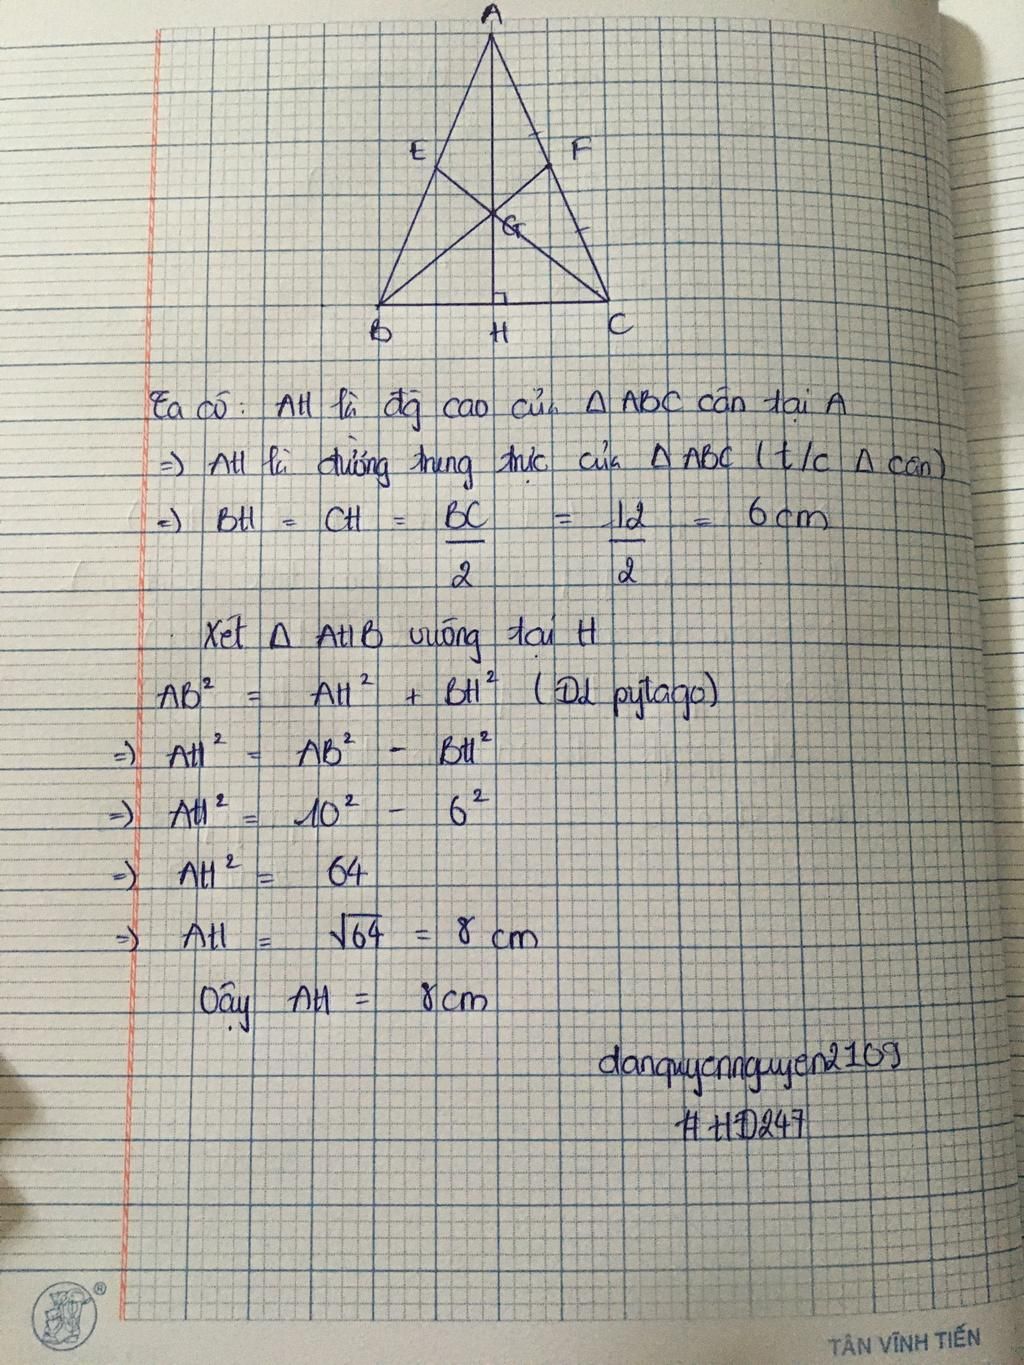 A
E
F
G
B
H
C
Ta có: AH là đg cao của Δ ABC cân tại A
=) AH là đường trung trực của Δ ABC (t/c Δ cân)
=) BH = CH = BC/2 = 12/2 = 6 cm
Xét Δ AHB vuông tại H
AB² = AH² + BH² (Đl pytago)
=) AH² = AB² - BH²
=) AH² = 10² - 6²
=) AH² = 64
=) AH = √64 = 8 cm
Vậy AH = 8cm
danquyennguyen2109
# HĐ247
®
TÂN VĨNH TIẾN